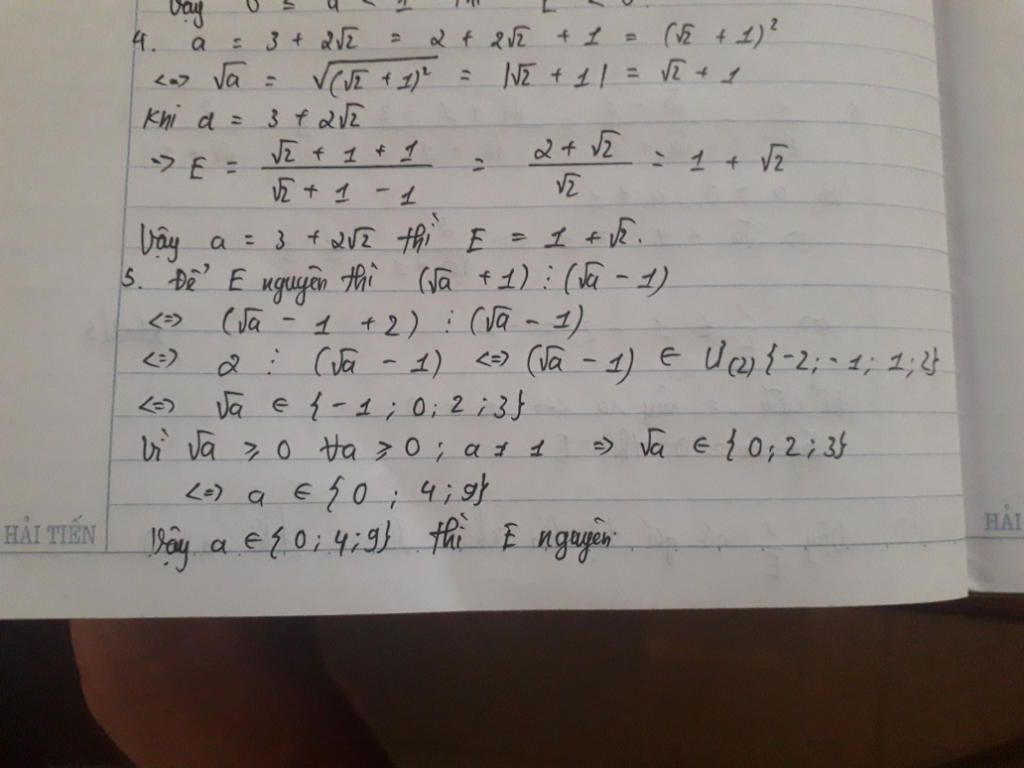 Vậy 0 ≤ a < 1 thì E < 0.
4. a = 3 + 2√2 = 2 + 2√2 + 1 = (√2 + 1)²
<=> √a = √(√2 + 1)² = |√2 + 1| = √2 + 1
Khi a = 3 + 2√2
=> E = (√2 + 1 + 1)/(√2 + 1 - 1) = (2 + √2)/√2 = 1 + √2
Vậy a = 3 + 2√2 thì E = 1 + √2.
5. Để E nguyên thì (√a + 1) ⋮ (√a - 1)
<=> (√a - 1 + 2) ⋮ (√a - 1)
<=> 2 ⋮ (√a - 1) <=> (√a - 1) ∈ Ư(2) {-2; -1; 1; 2}
<=> √a ∈ {-1; 0; 2; 3}
Vì √a ≥ 0 ∀a ≥ 0; a ≠ 1 => √a ∈ {0; 2; 3}
<=> a ∈ {0; 4; 9}
Vậy a ∈ {0; 4; 9} thì E nguyên.
HẢI TIẾN
HẢI